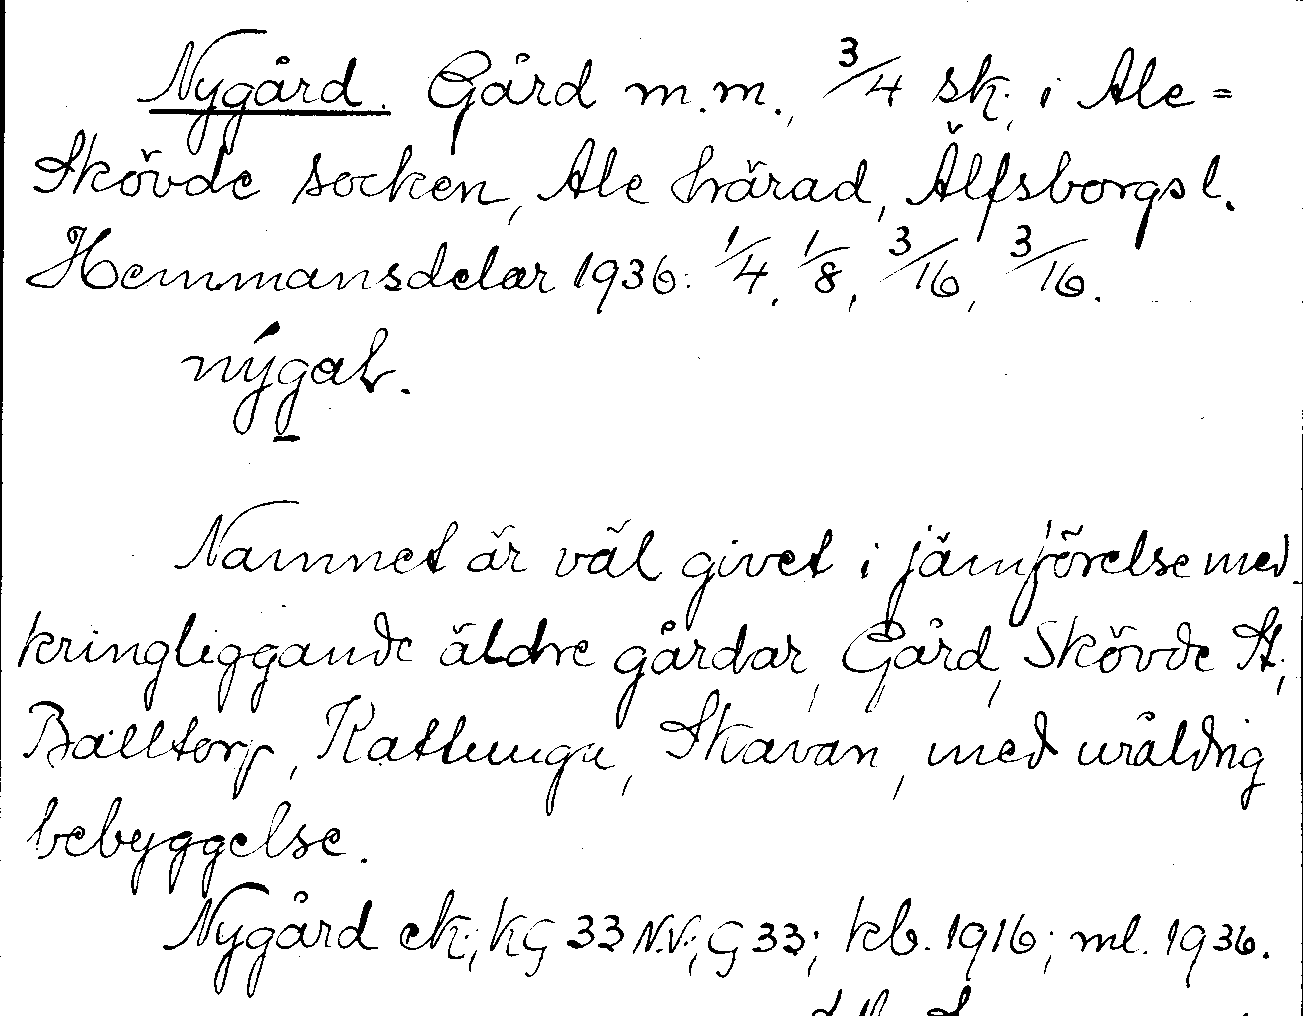 Nygård. Gård m.m., 3/4 sk, i Ale=
Skövde socken, Ale härad, Älfsborgs l.
Hemmansdelar 1936: 1/4, 1/8, 3/16, 3/16.
Namnet är väl givet i jämförelse med
kringliggande äldre gårdar, Gård, Skövde St.,
Balltorp, Ratlunga, Skavan, med uråldrig
bebyggelse.
Nygård ek.; KG 33 N.V.; G 33; kb. 1916; ml. 1936.